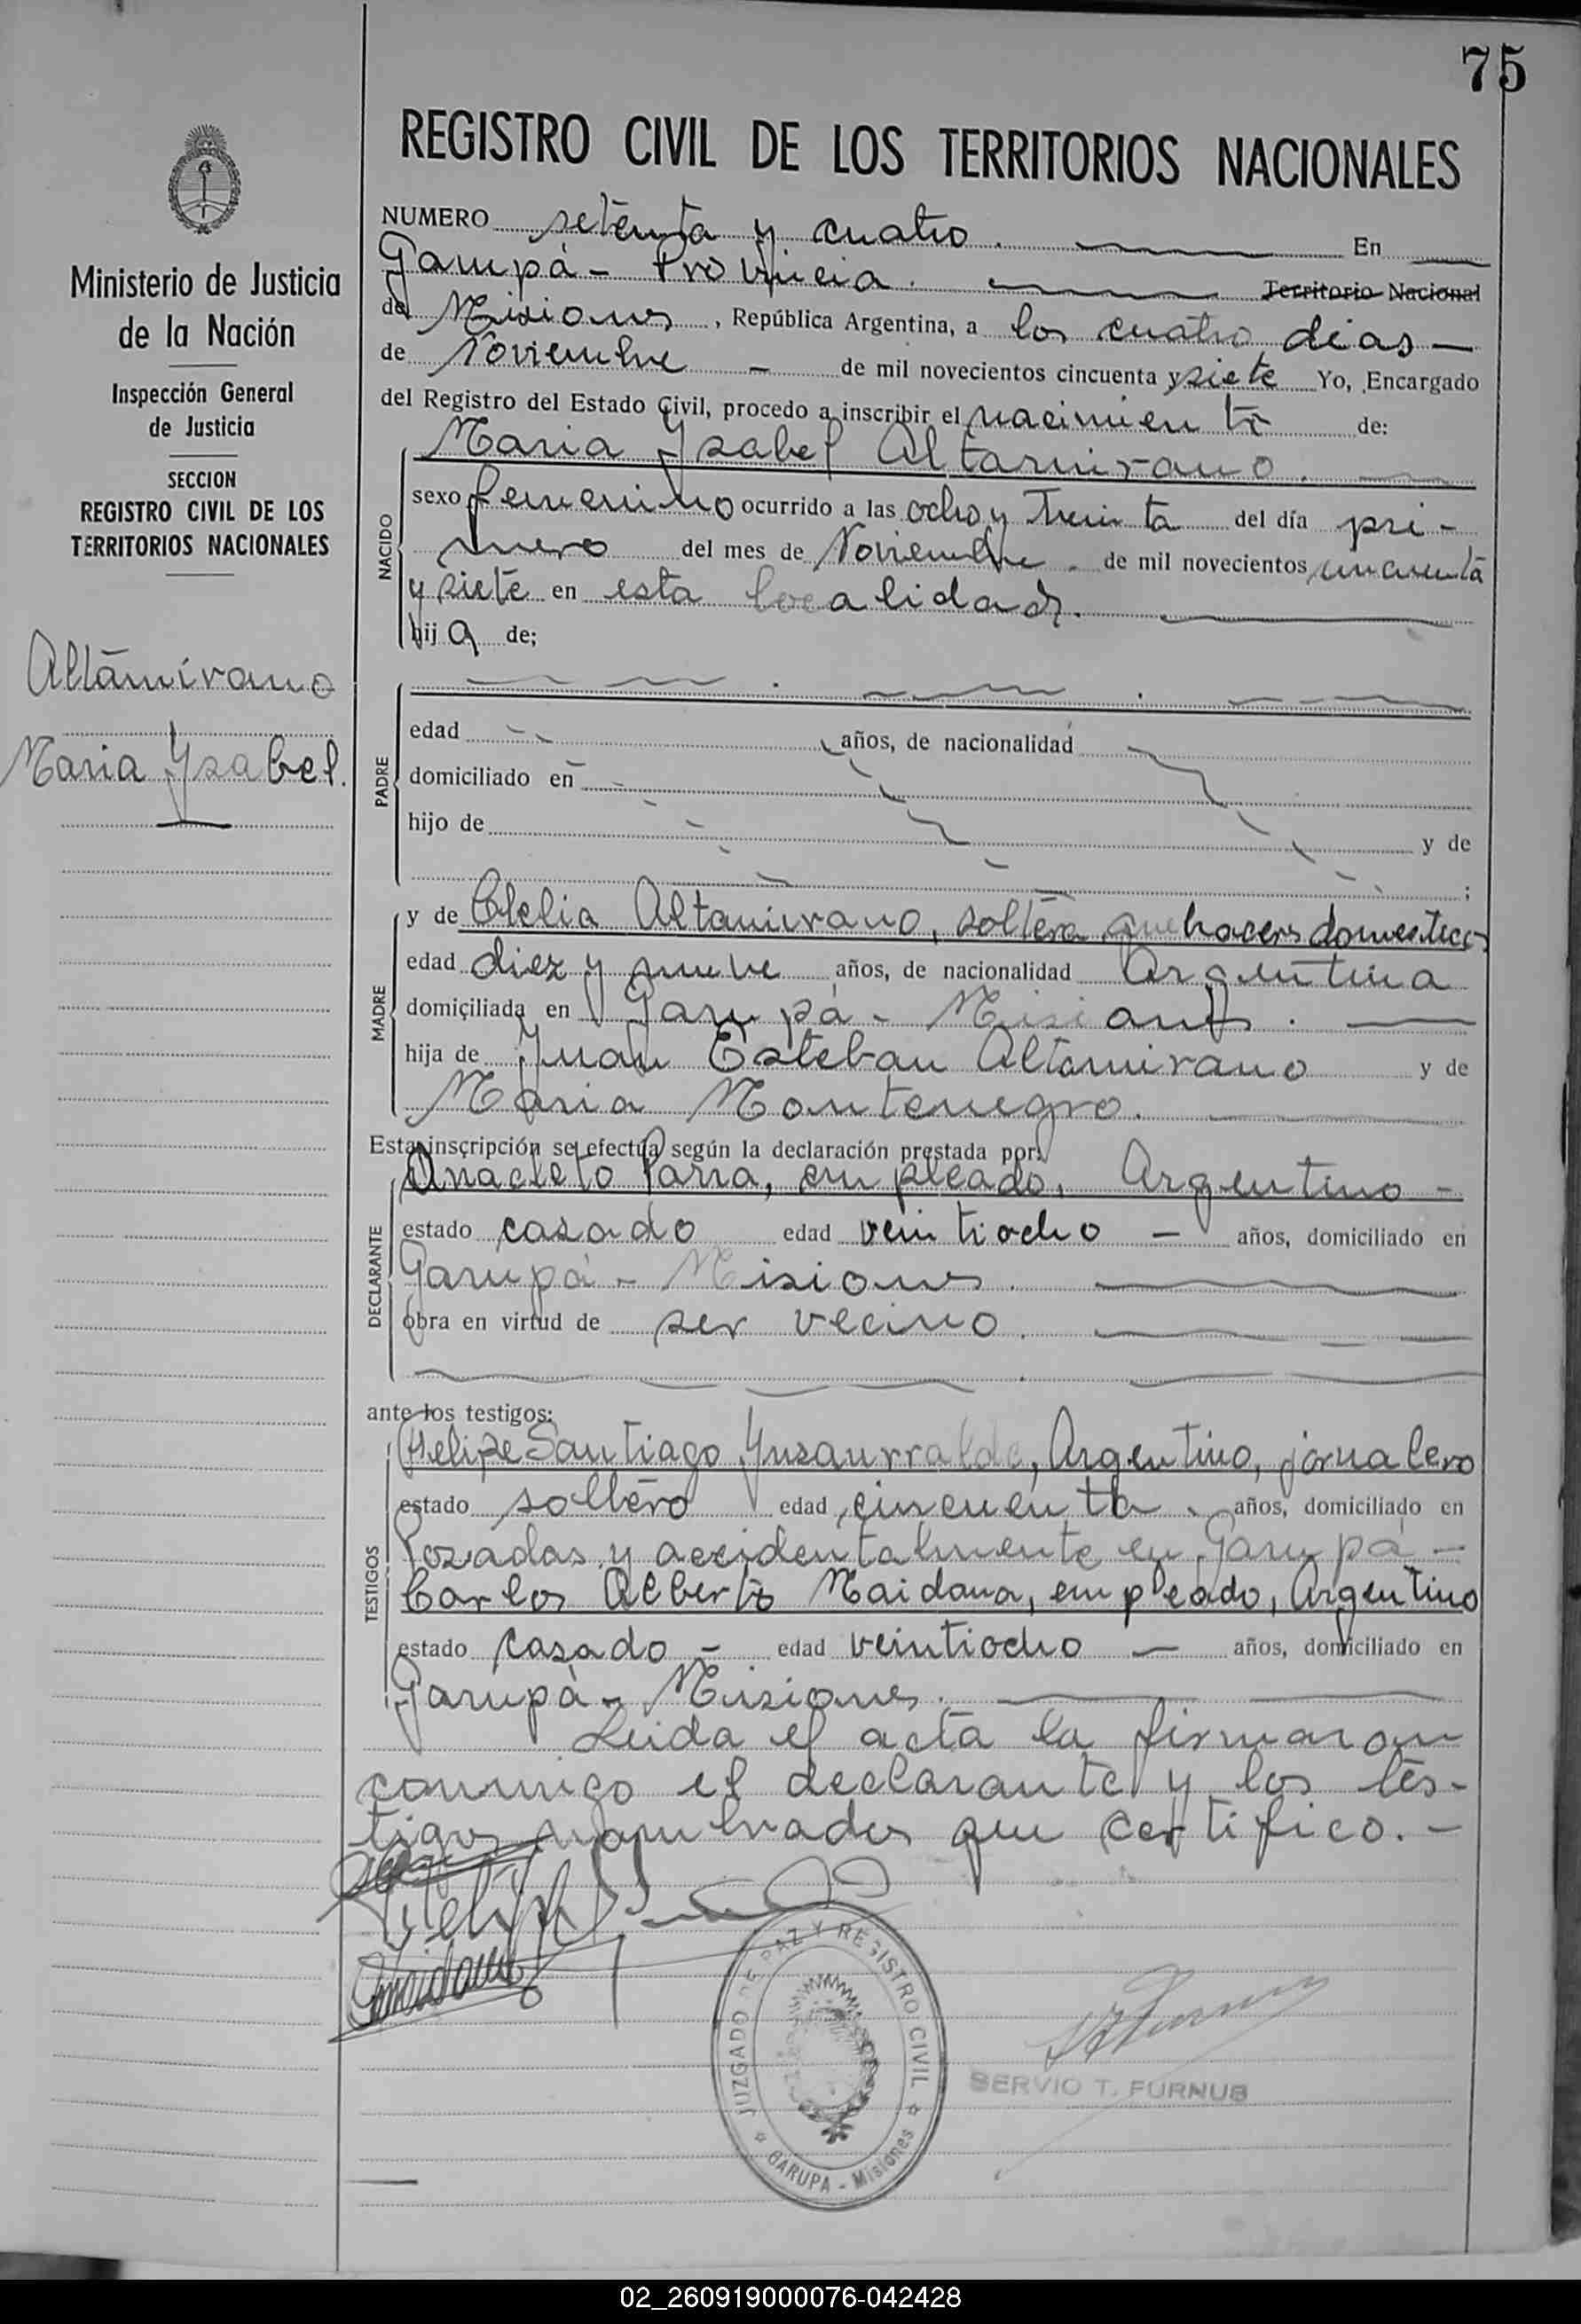 75
REGISTRO CIVIL DE LOS TERRITORIOS NACIONALES
Ministerio de Justicia
de la Nación
Inspección General
de Justicia
SECCION
REGISTRO CIVIL DE LOS
TERRITORIOS NACIONALES
Altamirano
Maria Ysabel.
NUMERO setenta y cuatro. En
Garupá - Provincia. Territorio Nacional
de Misiones, República Argentina, a los cuatro días
de Noviembre - de mil novecientos cincuenta y siete Yo, Encargado
del Registro del Estado Civil, procedo a inscribir el nacimiento de:
Maria Ysabel Altamirano.
NACIDO
sexo femenino ocurrido a las ocho y treinta del día pri-
mero del mes de Noviembre. de mil novecientos cincuenta
y siete en esta localidad.
hija de;
PADRE
edad años, de nacionalidad
domiciliado en
hijo de y de
;
MADRE
y de Clelia Altamirano, soltera quehaceres domesticos
edad diez y nueve años, de nacionalidad Argentina
domiciliada en Garupá - Misiones.
hija de Juan Esteban Altamirano y de
Maria Montenegro.
Esta inscripción se efectúa según la declaración prestada por:
DECLARANTE
Anacleto Parra, empleado, Argentino -
estado casado edad veintiocho - años, domiciliado en
Garupá - Misiones.
obra en virtud de ser vecino.
ante los testigos:
TESTIGOS
Felipe Santiago Ynsaurralde, Argentino, jornalero
estado soltero edad cincuenta. años, domiciliado en
Posadas y accidentalmente en Garupá -
Carlos Alberto Maidana, empleado, Argentino
estado casado - edad veintiocho - años, domiciliado en
Garupá - Misiones.
Leida el acta la firmaron
conmigo el declarante y los tes-
tigos nombrados que certifico. -
JUZGADO DE PAZ Y REGISTRO CIVIL
GARUPA - Misiones
SERVIO T. FURNUS
02_260919000076-042428